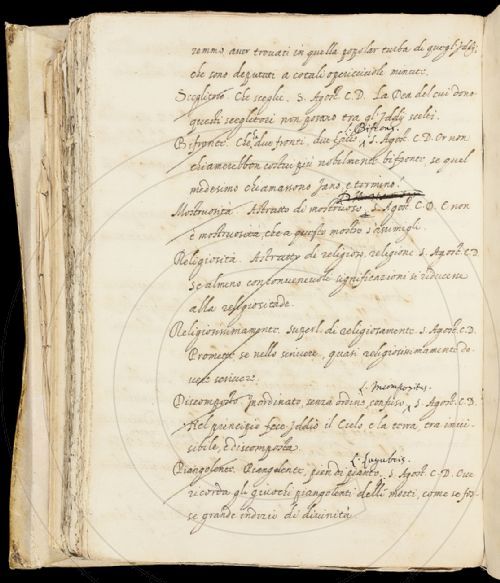 remmo aver trovati in quella popolar turba di quegl'Iddij,
che sono deputati a cotali opericciuole minute.
Scegliitore. Che sceglie. S. Agost. C. D. La Dea del cui dono
questi scegliitori non posano tra gl'Iddij scelti.
L. Bifrons.
Bifronte. Che ha due fronti, due faccie. S. Agost. C. D. Or non
chiamerebbon costui più nobilmente bifronte, se quel
medesimo chiamassono Jano, e termino?
Mostruosità. Astratto di mostruoso. S. Agost. C. D. E non
è mostruosità, che a questo mostro s'assimigli.
Religiosità. Astratto di religioso, religione. S. Agost. C. D.
Se almeno convenevole significazioni si riducesse
alla religiositade.
Religiosissimamente. Superl. di religiosamente. S. Agost. C. D.
Promette, se nello scrivere, quasi religiosissimamente do-
vette scrivere.
L. Incompositus.
Discomposto. Inordinato, senza ordine, confuso. S. Agost. C. D.
Nel principio fece Iddio il Cielo, e la terra, era invi-
sibile, e discomposta.
L. lugubris.
Piangolente. Piangolente, pien di pianto. S. Agost. C. D. Ove
ricorda gli giuochi piangolenti delli morti, come se fos-
se grande indizio di divinità.